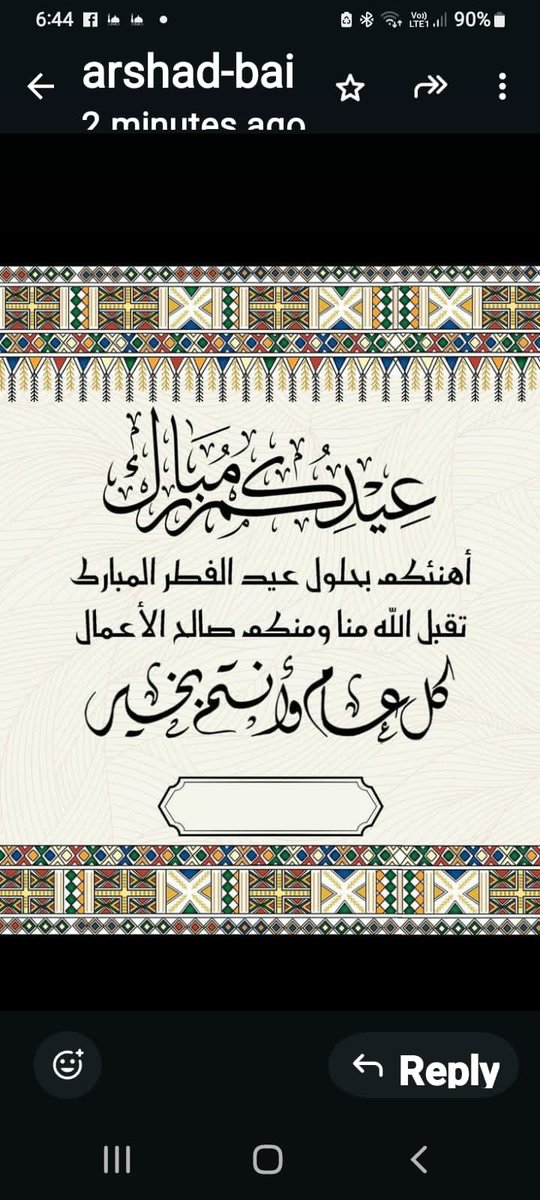 6:44
Vo)) LTE1 90%
arshad-bai
2 minutes ago
عِيْدِكُم مُبَارك
أهنئكم بحلول عيد الفطر المبارك
تقبل الله منا ومنكم صالح الأعمال
كل عام وأنتم بخير
Reply